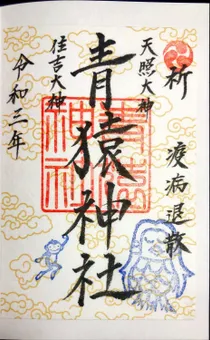 祈
疫病退散
天照大神
青猿神社
住吉大神
令和三年
青猿
神社